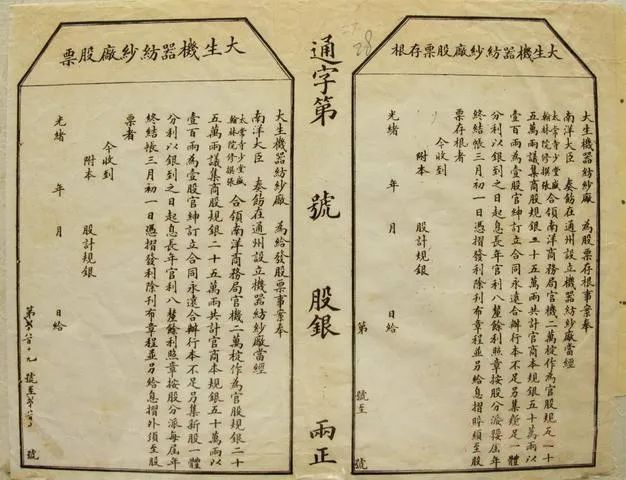 大生機器紡紗廠股票存根
大生機器紡紗廠　為股票存根事案奉
南洋大臣　奏飭在通州設立機器紡紗廠當經
太常寺少堂盛
翰林院修撰張
合領南洋商務局官機二萬錠作為官股規
五萬兩議集商股規銀二十五萬兩共計官商本規銀五十萬兩以
壹百兩為壹股官紳訂立合同永遠合辦行本不足另集一體
分利以銀到之日起息長年官利八釐餘利照章按股分派每屆年
終結帳三月初一日憑摺發利除刊布章程並另給息摺須至股
票存根者
今收到
附本　股計規銀
光緒　年　月　日給
第　號至　號
通字第　號　股銀　兩正
28
大生機器紡紗廠股票
大生機器紡紗廠　為給發股票事案奉
南洋大臣　奏飭在通州設立機器紡紗廠當經
太常寺少堂盛
翰林院修撰張
合領南洋商務局官機二萬錠作為官股規銀二十
五萬兩議集商股規銀二十五萬兩共計官商本規銀五十萬兩以
壹百兩為壹股官紳訂立合同永遠合辦行本不足另集新股一體
分利以銀到之日起息長年官利八釐餘利照章按股分派每屆年
終結帳三月初一日憑摺發利除刊布章程並另給息摺外須至股
票者
今收到
附本　股計規銀
光緒　年　月　日給
第　號至　號